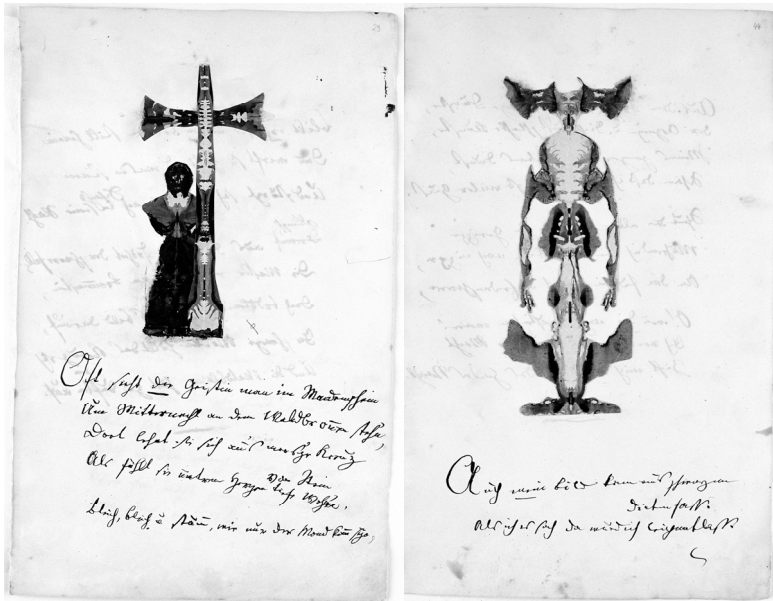 44
Oft sieht die Geistin man im Mondenschein
Um Mitternacht an dem Waldbronnen stehn,
Dort lehnt sie sich ans morsche Kreuz
von Stein
Als fühlt sie unterm Herzen tiefe Wehen.
Bleich, bleich u. stumm, wie nur der Mond kann
Auch mein Bild kam aus schwarzem
Dintenfass.
Als ich es sah da wurd ich leichenblass.